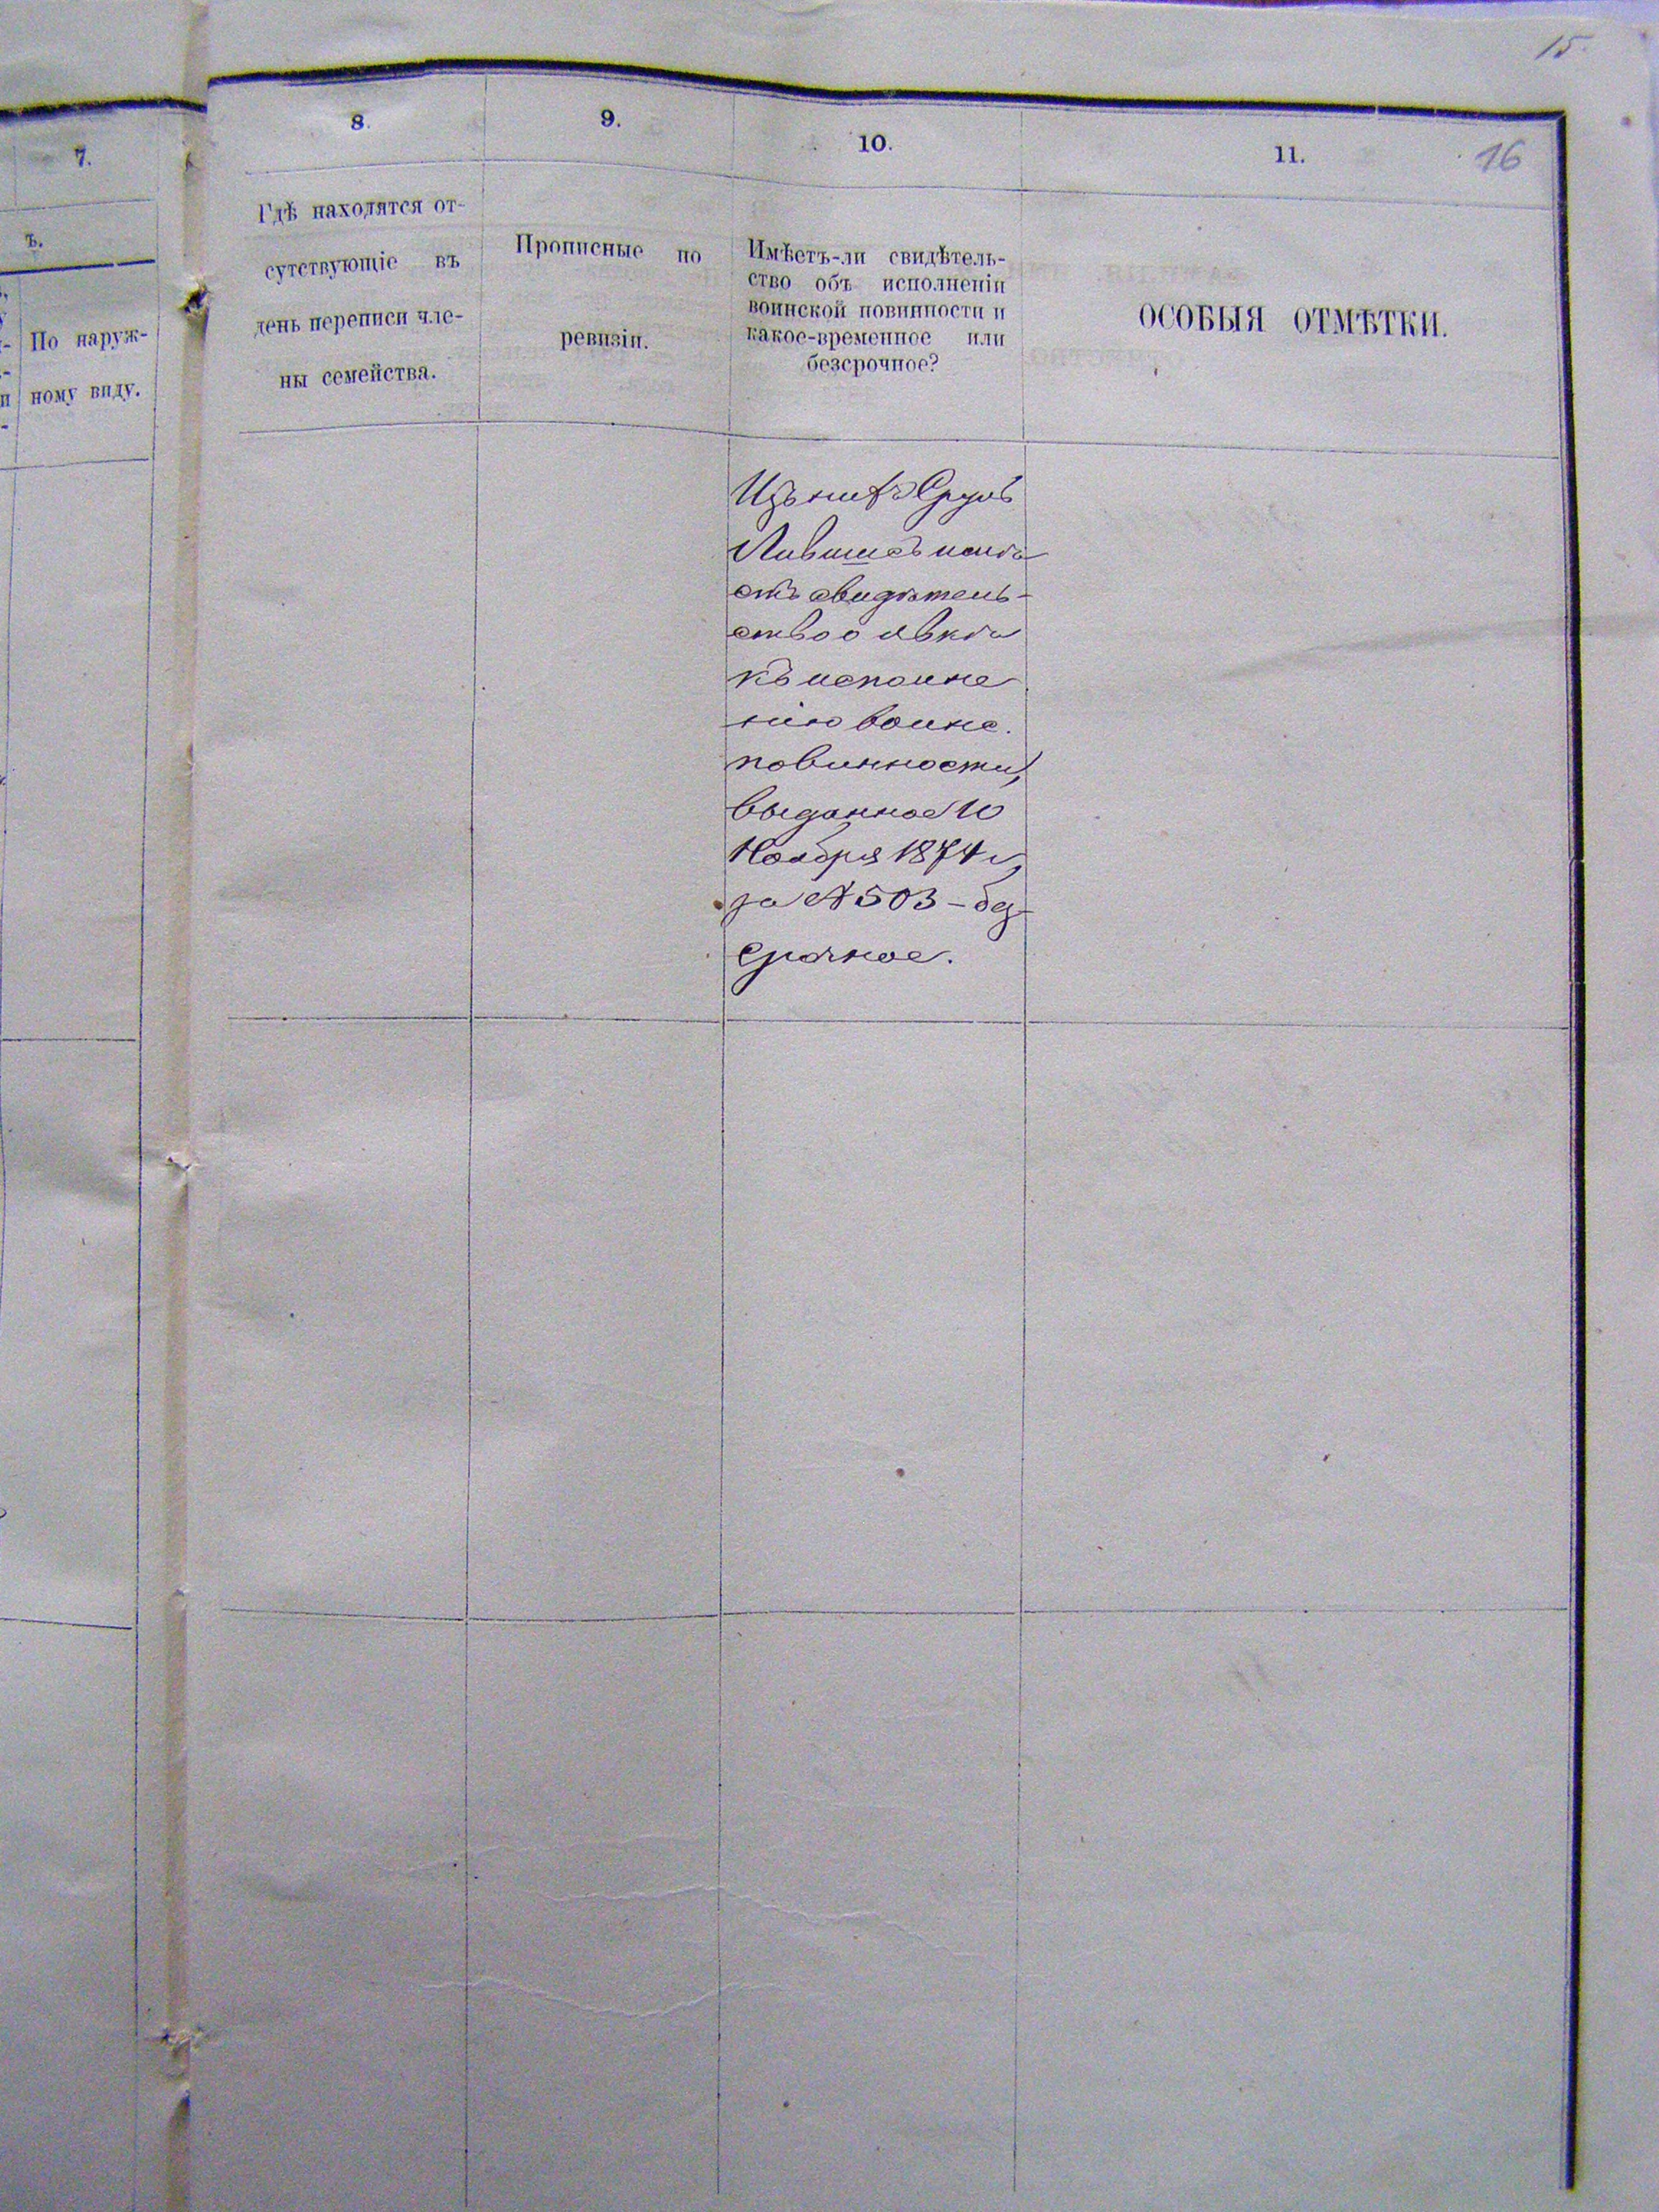 15.
7.
ъ.
По наруж-
ному виду.
8.
Гдѣ находятся от-
сутствующіе въ
день переписи чле-
ны семейства.
9.
Прописные по
ревизіи.
10.
Имѣетъ-ли свидѣтель-
ство объ исполненіи
воинской повинности и
какое-временное или
безсрочное?
11.
16
ОСОБЫЯ ОТМѢТКИ.
Изъ нихъ
имѣ
етъ свидѣтель-
ство о явкѣ
къ исполне
нію воинс.
повинности,
выданное 10
Ноября 1874 г.
за № 503 – без
срочное.